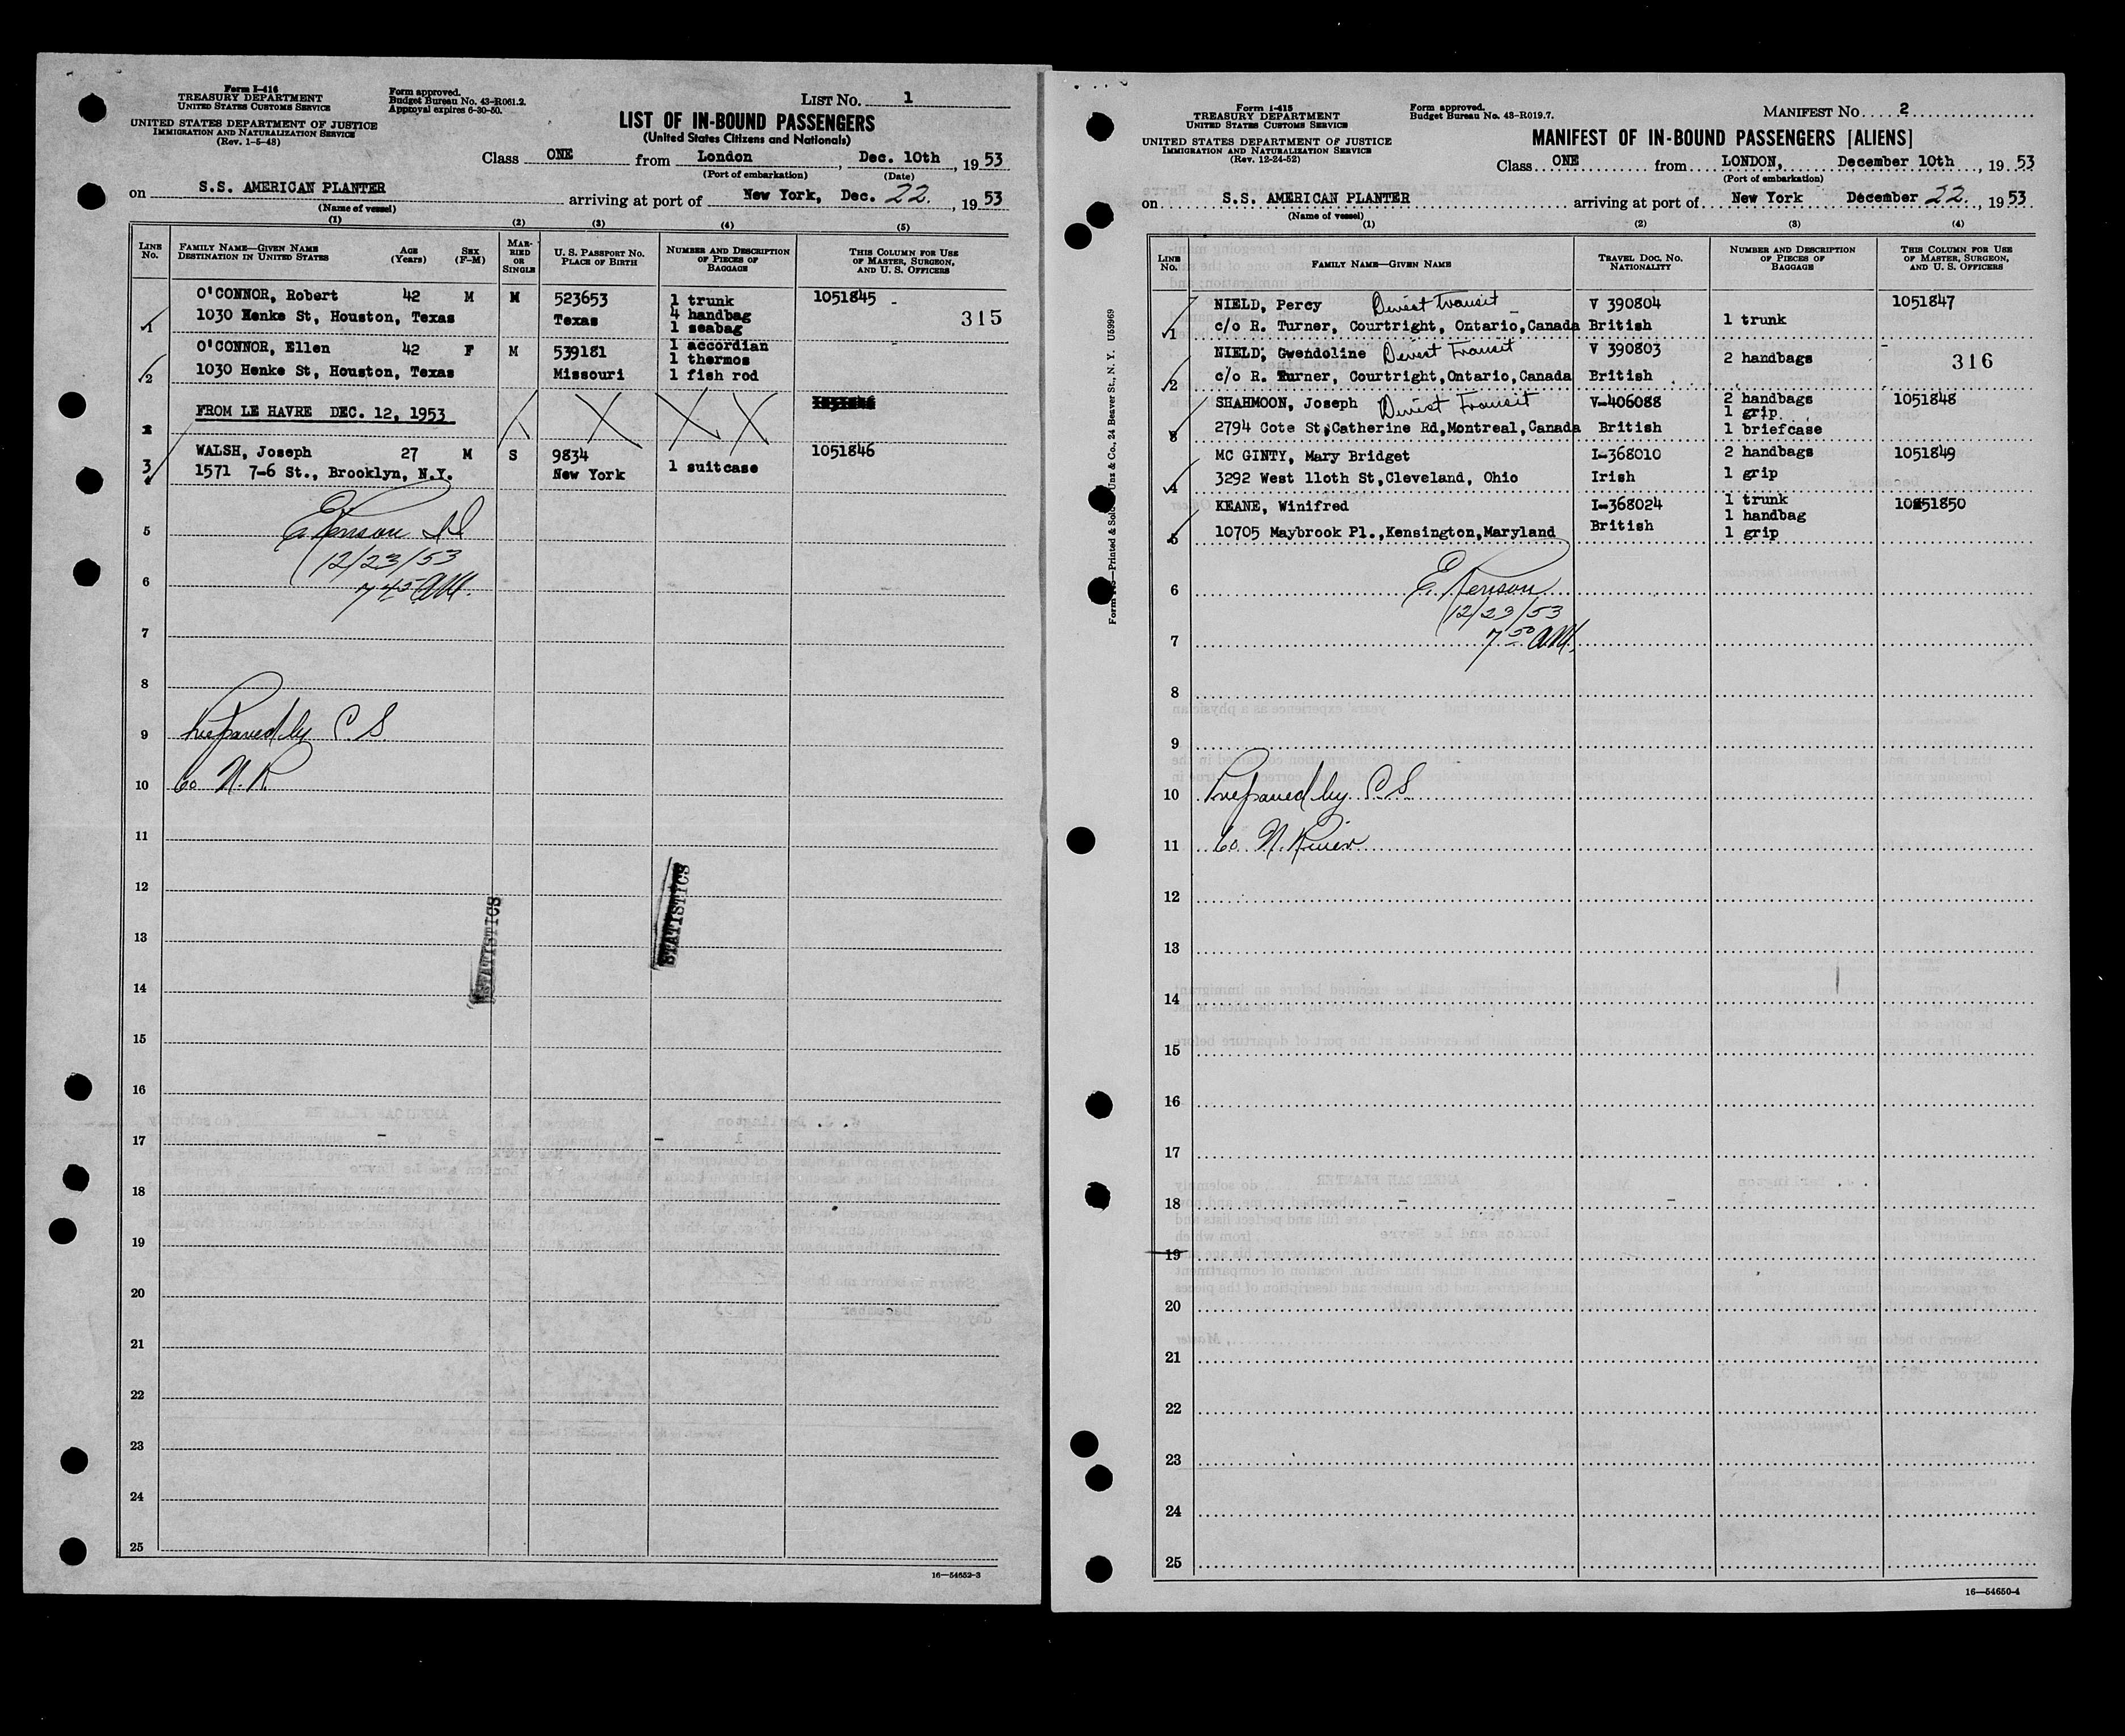 Form I-416
TREASURY DEPARTMENT
UNITED STATES CUSTOMS SERVICE
UNITED STATES DEPARTMENT OF JUSTICE
IMMIGRATION AND NATURALIZATION SERVICE
(Rev. 1-5-48)
Form approved.
Budget Bureau No. 43-R061.2.
Approval expires 6-30-50.
LIST NO. 1
LIST OF IN-BOUND PASSENGERS
(United States Citizens and Nationals)
Class ONE from London, Dec. 10th, 1953
(Port of embarkation) (Date)
on S.S. AMERICAN PLANTER arriving at port of New York, Dec. 22., 1953
(Name of vessel)
(1) (2) (3) (4) (5)
LINE NO. FAMILY NAME—GIVEN NAME DESTINATION IN UNITED STATES AGE (Years) SEX (F-M) MARRIED OR SINGLE U. S. PASSPORT NO. PLACE OF BIRTH NUMBER AND DESCRIPTION OF PIECES OF BAGGAGE THIS COLUMN FOR USE OF MASTER, SURGEON, AND U. S. OFFICERS
1 O'CONNOR, Robert 42 M M 523653 1 trunk 1051845
1030 Henke St, Houston, Texas Texas 4 handbag 315
1 seabag
2 O'CONNOR, Ellen 42 F M 539181 1 accordian
1 thermos
1030 Henke St, Houston, Texas Missouri 1 fish rod
FROM LE HAVRE DEC. 12, 1953
3 WALSH, Joseph 27 M S 9834 1051846
1571 7-6 St., Brooklyn, N.Y. New York 1 suitcase
4
5
12/23/53
6 7 45 AM.
7
8
9 Prepared by C. S.
10 60 N. R.
11
12
STATISTICS
STATISTICS
13
14
15
16
17
18
19
20
21
22
23
24
25
16—54652-3
Form I-415
TREASURY DEPARTMENT
UNITED STATES CUSTOMS SERVICE
UNITED STATES DEPARTMENT OF JUSTICE
IMMIGRATION AND NATURALIZATION SERVICE
(Rev. 12-24-52)
Form approved.
Budget Bureau No. 43-R019.7.
MANIFEST NO. 2
MANIFEST OF IN-BOUND PASSENGERS [ALIENS]
Class ONE from LONDON, December 10th, 1953
(Port of embarkation)
on S.S. AMERICAN PLANTER arriving at port of New York December 22., 1953
(Name of vessel)
(1) (2) (3) (4)
LINE NO. FAMILY NAME—GIVEN NAME TRAVEL DOC. NO. NATIONALITY NUMBER AND DESCRIPTION OF PIECES OF BAGGAGE THIS COLUMN FOR USE OF MASTER, SURGEON, AND U. S. OFFICERS
NIELD, Percy Direct Transit V 390804 1051847
1 c/o R. Turner, Courtright, Ontario,Canada British 1 trunk
NIELD, Gwendoline Direct Transit V 390803 2 handbags 316
2 c/o R. Turner, Courtright,Ontario,Canada British
SHAHMOON, Joseph Direct Transit V-406088 2 handbags 1051848
1 grip
3 2794 Cote St,Catherine Rd,Montreal,Canada British 1 briefcase
MC GINTY, Mary Bridget I-368010 2 handbags 1051849
4 3292 West 110th St,Cleveland, Ohio Irish 1 grip
KEANE, Winifred I-368024 1 trunk 1051850
1 handbag
5 10705 Maybrook Pl.,Kensington,Maryland British 1 grip
6
12/23/53
7 7 50 AM.
8
9
10 Prepared by C S
11 60 N. River
12
13
14
15
16
17
18
19
20
21
22
23
24
25
16—54650-4
Unz & Co., 24 Beaver St., N. Y. U59969